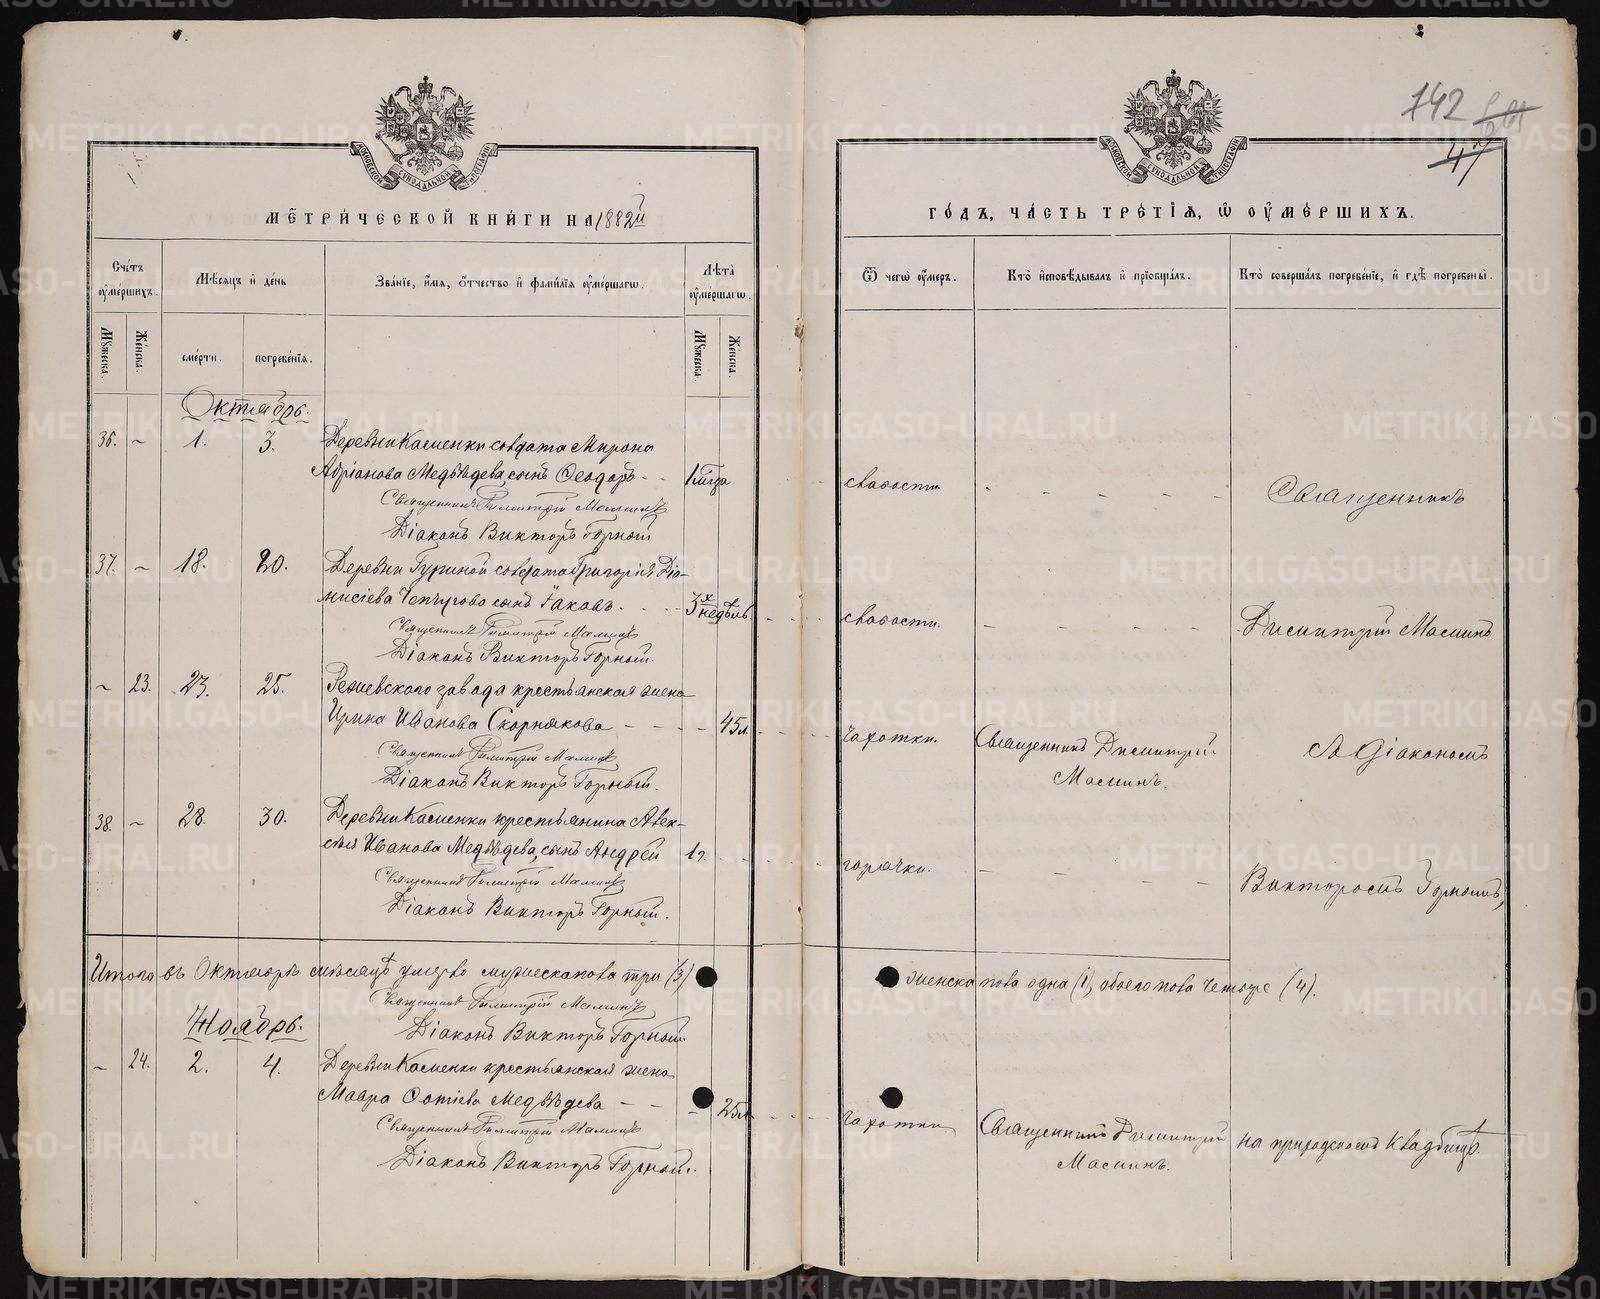 142
47
МЕТРИЧЕСКОЙ КНИГИ НА 1882й
ГОДЪ, ЧАСТЬ ТРЕТІЯ, Ѿ ОУМЕРШИХЪ.
Счетъ оумершихъ.
Мѣсяцъ и день
Званіе, имя, отчество и фамилія оумершагѡ.
Лѣта оумершагѡ.
Ѿ чегѡ оумеръ.
Кто исповѣдывалъ и пріобщалъ.
Кто совершалъ погребеніе, и гдѣ погребены.
Мужеска.
Женска.
смерти.
погребенія.
Мужеска.
Женска.
Октябрь.
36. ~ 1. 3. Деревни Каменки солдата Мирона
Адріанова Медвѣдева, сынъ Ѳеодоръ - - 1 года слабости. - - - - - Священникъ
Священникъ Димитрій Маминъ
Діаконъ Викторъ Горный
37. ~ 18. 20. Деревни Гуриной солдата Григорія Діо-
нисіева Чепчугова сынъ Іаковъ. 3х недѣль. слабости. - - - - - Димитрій Маминъ
Священникъ Димитрій Маминъ
Діаконъ Викторъ Горный.
~ 23. 23. 25. Режевскаго завода крестьянская жена
Ирина Иванова Скорнякова - - - - 45 л. чахотки. Священникъ Димитрій Маминъ. съ Діакономъ
Священникъ Димитрій Маминъ
Діаконъ Викторъ Горный.
38. ~ 28. 30. Деревни Каменки крестьянина Алек-
сѣя Иванова Медвѣдева, сынъ Андрей 1 г. горячки. - - - - Викторомъ Горнымъ,
Священникъ Димитрій Маминъ
Діаконъ Викторъ Горный.
Итого въ Октябрѣ мѣсяцѣ умерло мужеска пола три (3) женска пола одна (1), обоего пола четыре (4).
Священникъ Димитрій Маминъ
Діаконъ Викторъ Горный.
Ноябрь.
~ 24. 2. 4. Деревни Каменки крестьянская жена
Мавра Фотіева Медвѣдева - - - 25 л. чахотки. Священникъ Димитрій Маминъ. на приходскомъ кладбищѣ.
Священникъ Димитрій Маминъ
Діаконъ Викторъ Горный.
METRIKI.GASO-URAL.RU